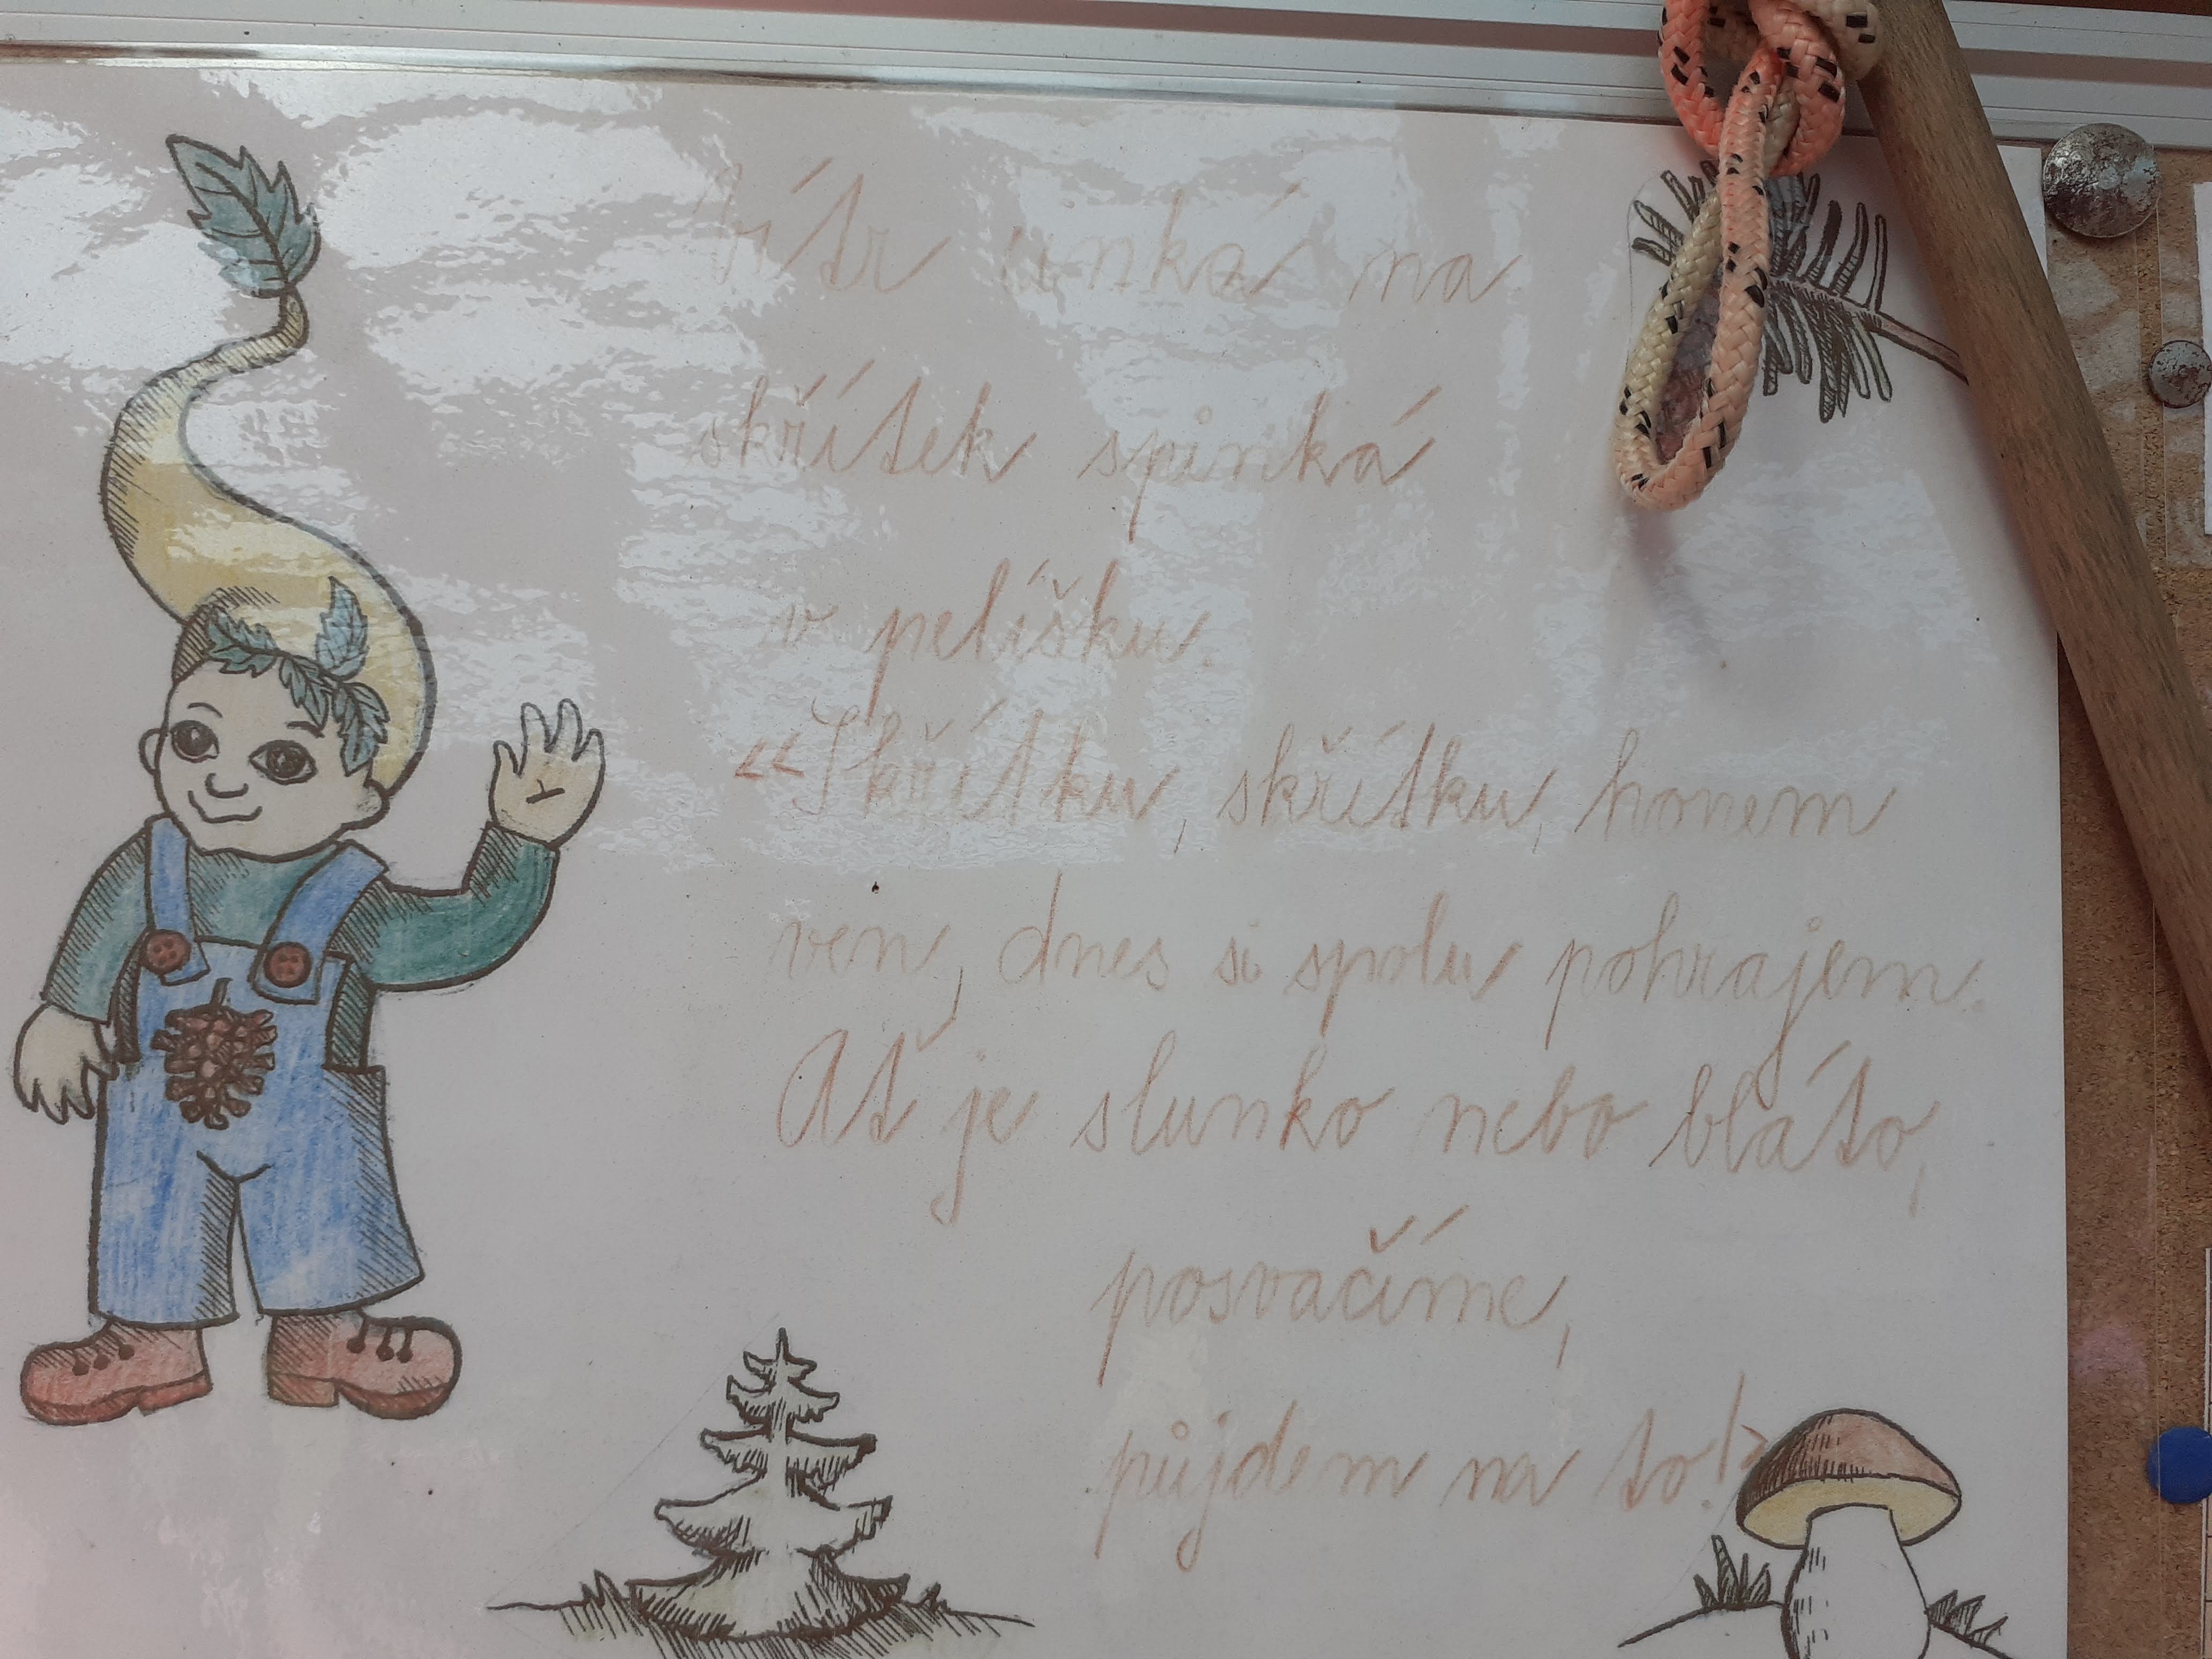 Vítr cinká na
skřítek spinká
v pelíšku.
«Skřítku, skřítku, honem
ven, dnes si spolu pohrajem.
Ať je slunko nebo bláto,
posvačíme,
půjdem na to!»